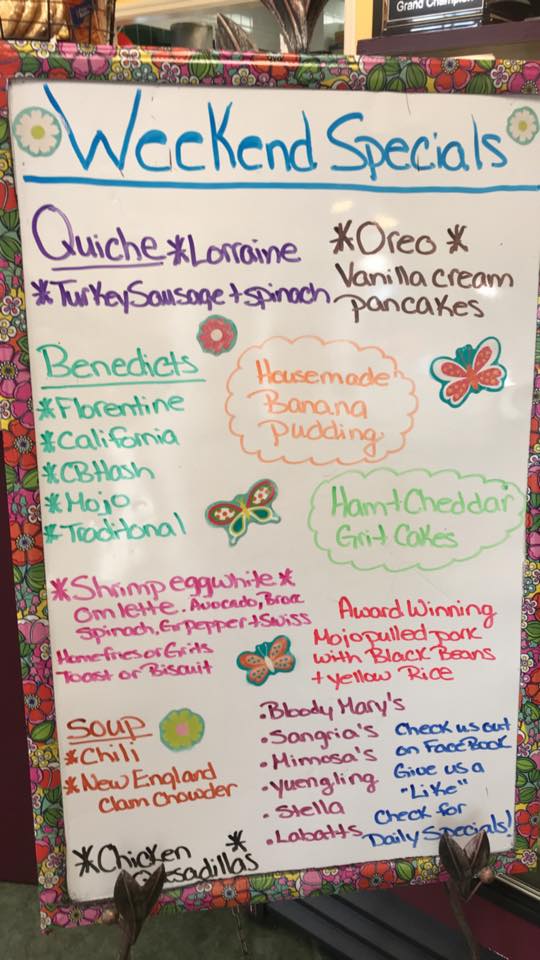 Grand Champion
Weekend Specials
Quiche *Lorraine
*Turkey Sausage + spinach
*Oreo *
Vanilla cream
pancakes
Benedicts
*Florentine
*California
*CB Hash
*Mojo
*Traditional
Housemade
Banana
Pudding
Ham + Cheddar
Grit Cakes
*Shrimp eggwhite*
Omlette. Avocado, Brocc
Spinach, Gr pepper + Swiss
Homefries or Grits
Toast or Biscuit
Award Winning
Mojo pulled-pork
with Black Beans
+ yellow Rice
Soup
*Chili
*New England
Clam Chowder
•Bloody Mary's
•Sangria's
•Mimosa's
•Yuengling
•Stella
•Labatts
Check us out
on FaceBook
Give us a
"Like"
Check for
Daily Specials!
*Chicken *
Quesadillas